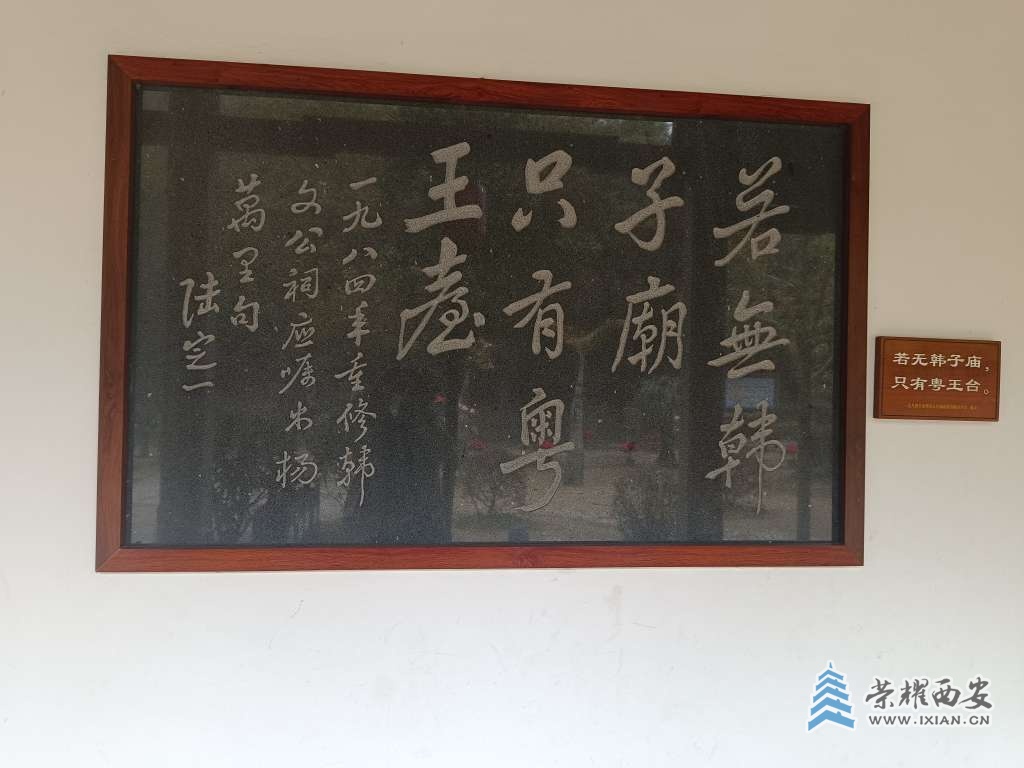 若無韓
子廟
只有粵
王臺
一九八四年重修韓
文公祠应嘱书杨
萬里句
陆定一
若无韩子庙，
只有粤王台。
荣耀西安
WWW.IXIAN.CN